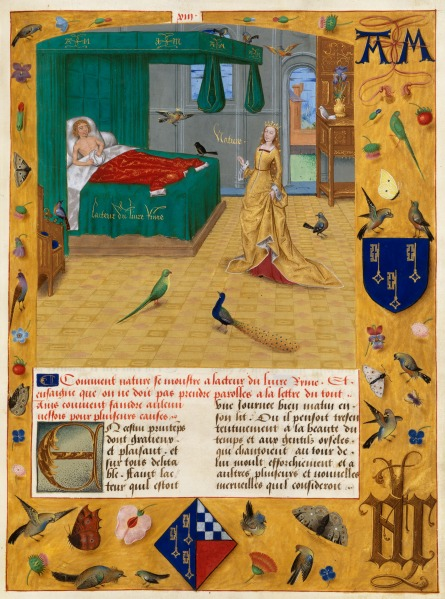 viij
A M
Nature
L'acteur du livre Rime
Comment nature se monstre a lacteur du livre Ryme. Et
enseigne que on ne doit pas prendre parolles a la lettre du tout
Ains comment faindre aulcu
nesfois pour plusieurs causes.
En cestui printeps
dont gratieux
et plaisant. et
sur tous delita
ble.stant lac
teur qui estoit
vne Journee bien matin en
son lit. Ou il pensoit tresen
tentiuement a la beaute du
temps et aux gentilz oiseles
que chantoient au tour de
lui moult efforchement et a
aultres pluseurs et nouuelles
merueilles qui consideroit